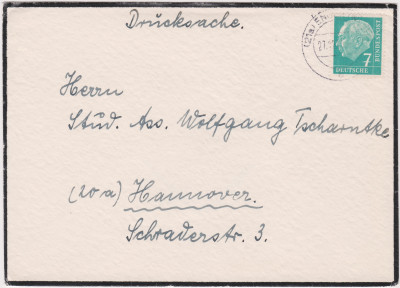 Drucksache.
7
DEUTSCHE
BUNDESPOST
Herrn
Stud. Ass. Wolfgang Tscharntke
(20a) Hannover.
Schraderstr. 3.